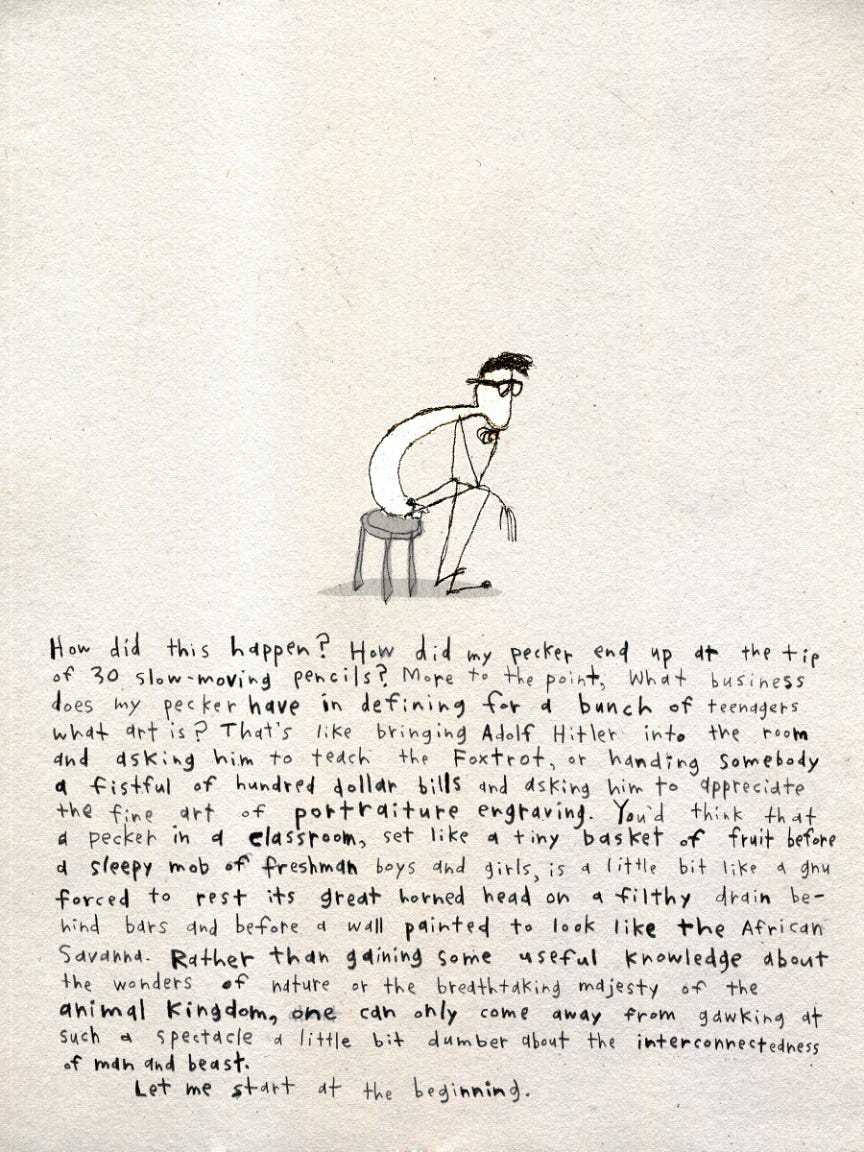 How did this happen? How did my pecker end up at the tip
of 30 slow-moving pencils? More to the point, What business
does my pecker have in defining for a bunch of teenagers
what art is? That's like bringing Adolf Hitler into the room
and asking him to teach the Foxtrot, or handing somebody
a fistful of hundred dollar bills and asking him to appreciate
the fine art of portraiture engraving. You'd think that
a pecker in a classroom, set like a tiny basket of fruit before
a sleepy mob of freshman boys and girls, is a little bit like a gnu
forced to rest its great horned head on a filthy drain be-
hind bars and before a wall painted to look like the African
Savanna. Rather than gaining some useful knowledge about
the wonders of nature or the breathtaking majesty of the
animal Kingdom, one can only come away from gawking at
such a spectacle a little bit dumber about the interconnectedness
of man and beast.
Let me start at the beginning.